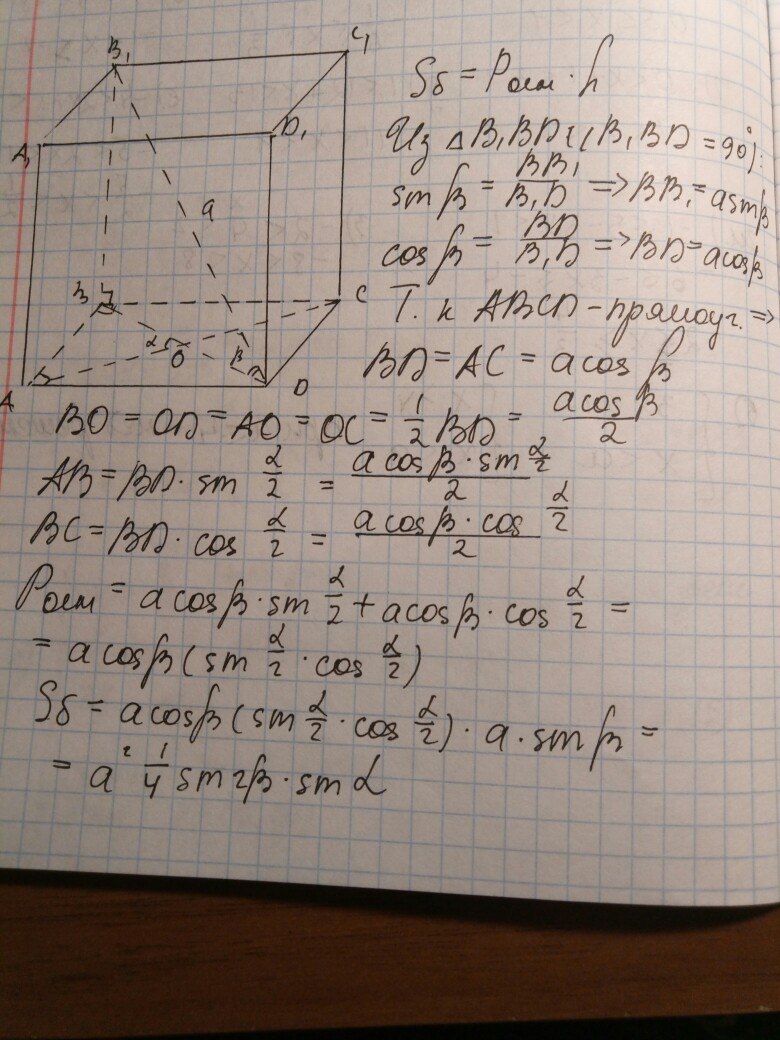 B₁
C₁
A₁
D₁
a
B
C
α
O
β
A
D
Sб = Pосн · h
Из △B₁BD (∠B₁BD = 90°):
sin β = BB₁/B₁D => BB₁ = a sin β
cos β = BD/B₁D => BD = a cos β
Т. к ABCD - прямоуг. =>
BD = AC = a cos β
BO = OD = AO = OC = 1/2 BD = a cos β/2
AB = BD · sin α/2 = a cos β · sin α/2 / 2
BC = BD · cos α/2 = a cos β · cos α/2 / 2
Pосн = a cos β · sin α/2 + a cos β · cos α/2 =
= a cos β (sin α/2 · cos α/2)
Sб = a cos β (sin α/2 · cos α/2) · a · sin β =
= a² 1/4 sin 2β · sin α